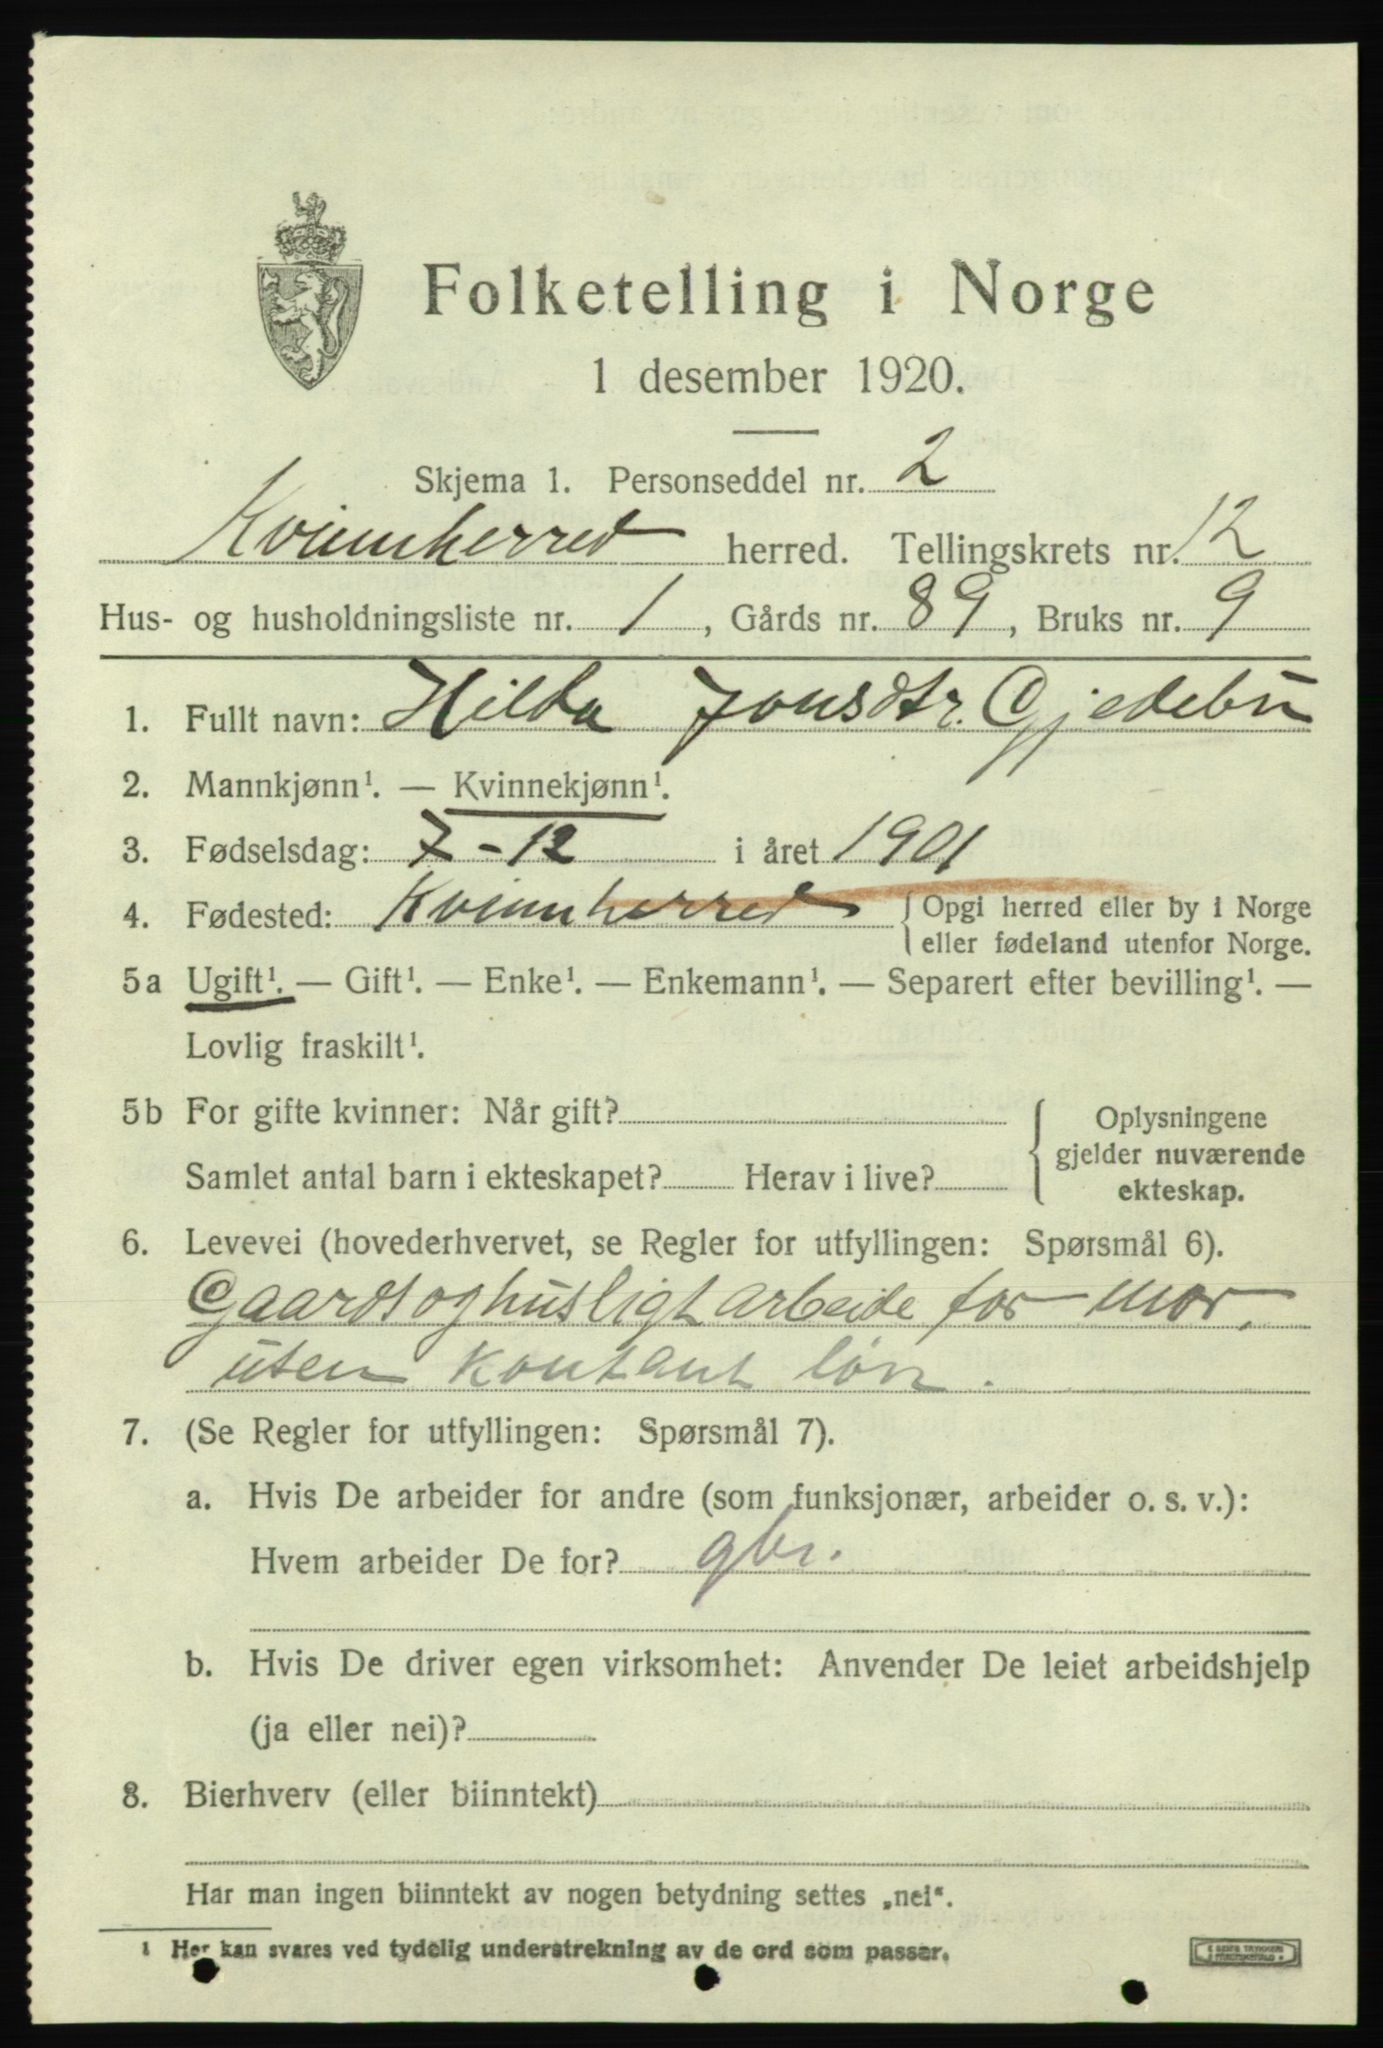 Folketelling i Norge
1 desember 1920.
Skjema 1. Personseddel nr. 2
Kvinnherred herred. Tellingskrets nr. 12
Hus- og husholdningsliste nr. 1, Gårds nr. 89, Bruks nr. 9
1. Fullt navn: Hilda Jonsdtr. Gjedebu
2. Mannkjønn¹. — Kvinnekjønn¹.
3. Fødselsdag: 7-12 i året 1901
4. Fødested: Kvinnherred { Opgi herred eller by i Norge
eller fødeland utenfor Norge.
5a Ugift¹. — Gift¹. — Enke¹. — Enkemann¹. — Separert efter bevilling¹. —
Lovlig fraskilt¹.
5b For gifte kvinner: Når gift?
Samlet antal barn i ekteskapet? Herav i live?
{ Oplysningene
gjelder nuværende
ekteskap.
6. Levevei (hovederhvervet, se Regler for utfyllingen: Spørsmål 6).
Gaards og huslig arbeide for mor,
uten kontant løn.
7. (Se Regler for utfyllingen: Spørsmål 7).
a. Hvis De arbeider for andre (som funksjonær, arbeider o. s. v.):
Hvem arbeider De for? gbr.
b. Hvis De driver egen virksomhet: Anvender De leiet arbeidshjelp
(ja eller nei)?
8. Bierhverv (eller biinntekt)
Har man ingen biinntekt av nogen betydning settes „nei“.
¹ Her kan svares ved tydelig understrekning av de ord som passer.